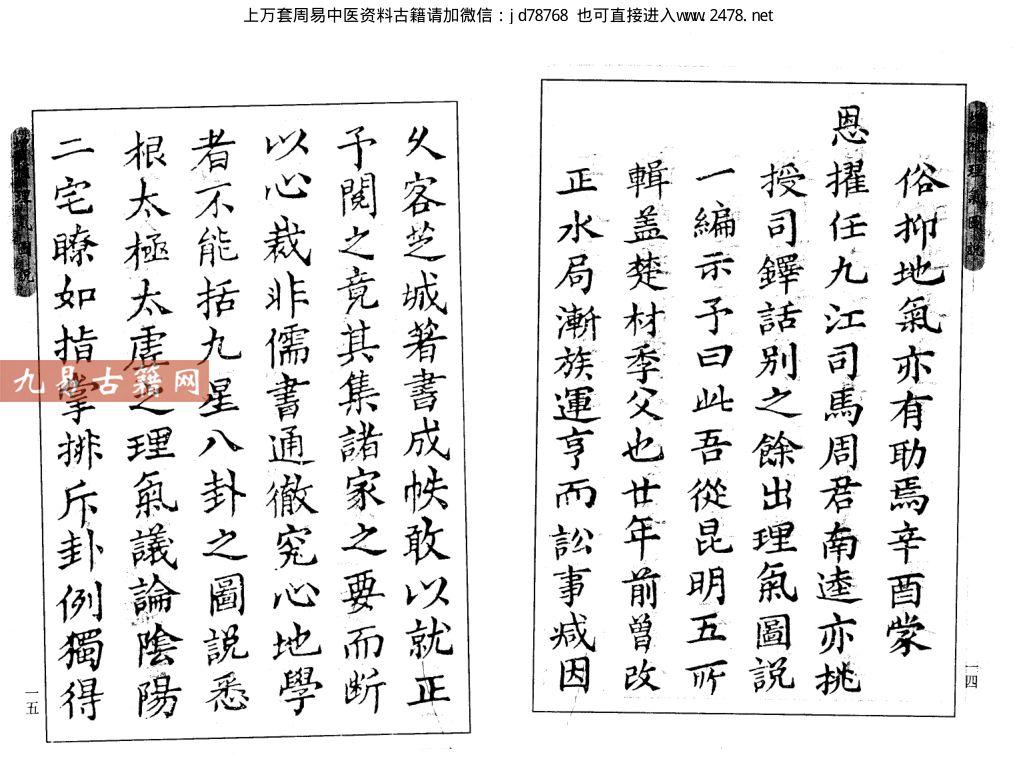 上万套周易中医资料古籍请加微信：jd78768 也可直接进入www.2478.net
俗抑地氣亦有助焉辛酉蒙
恩擢任九江司馬周君南逵亦挑
授司鐸話別之餘出理氣圖説
一編示予曰此吾從昆明五所
輯盖楚材季父也廿年前曾改
正水局漸族運亨而訟事減因
一四
久客芝城著書成帙敢以就正
予閱之竟其集諸家之要而断
以心裁非儒書通徹究心地學
者不能括九星八卦之圖説悉
根太極太虛之理氣議論陰陽
二宅瞭如指掌排斥卦例獨得
一五
九易古籍网